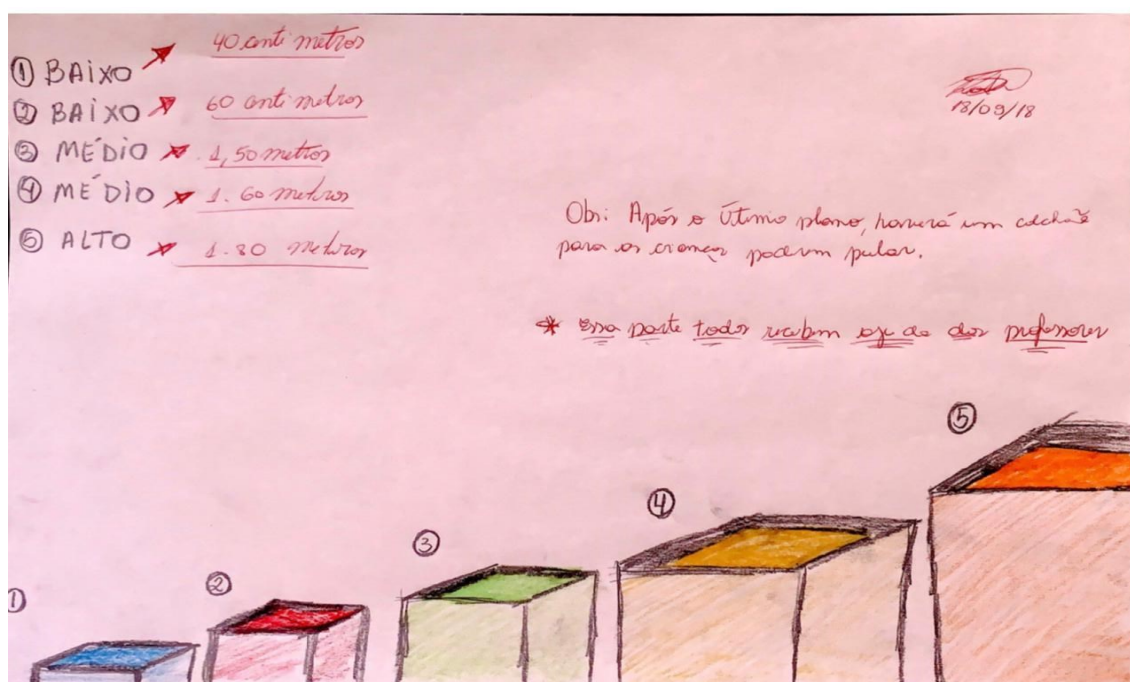 ① BAIXO 40 centi metros
② BAIXO 60 centi metros
③ MÉDIO 1,50 metros
④ MÉDIO 1.60 metros
⑤ ALTO 1.80 metros
18/09/18
Obs: Após o Útimo plano, haverá um colchão
para as crianças poderem pular.
* Essa parte todos recebem aju da dos professores
①
②
③
④
⑤